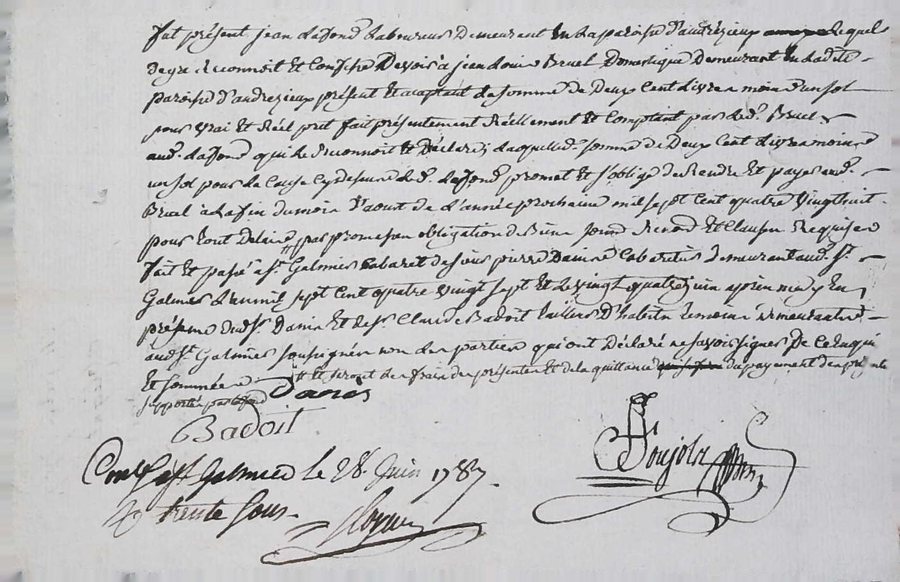 fut présent jean Lafond Laboureur Demeurant En la paroisse d'andrezieux Lequel
de gré Reconnoit Et Confesse Devoir à jean Louis Bruel Domestique Demeurant En Ladite
paroisse d'andrezieux présent Et acceptant La somme de Deux Cent Livres moins d'un sol
pour vrai Et Réel prêt fait présentement Réellement Et Comptant par led. Bruel
aud. Lafond qui Le Reconnoit Et Déclare, Laquelle somme de Deux Cent Livres moins
un sol pour La Cause Cy dessus led. Lafond promet Et s'oblige de Rendre Et payer aud.
Bruel à La fin du mois d'aout de L'année prochaine mil sept Cent quatre Vingt huit
pour tout Délai par promesse obligation de Biens Renond Et Clauses Requises
fait Et passé à St. Galmier Cabaret de sieur pierre Danire Cabaretier Demeurant aud. St.
Galmier L'an mil sept Cent quatre Vingt sept Et Le Vingt quatre juin après midy En
présence dud. Sr. Et de Sr. Claude Badoit tailleur D'habits Demeurant
aud. St. Galmier soussignés non Les parties qui ont Déclaré ne savoir signer De Ce Enquis
Et sommées Et seront Les frais des présentes Et de la quittance du payement des présentes
supportés par Lafond
Badoit
à St Galmier Le 28. Juin 1787.
trente sous.